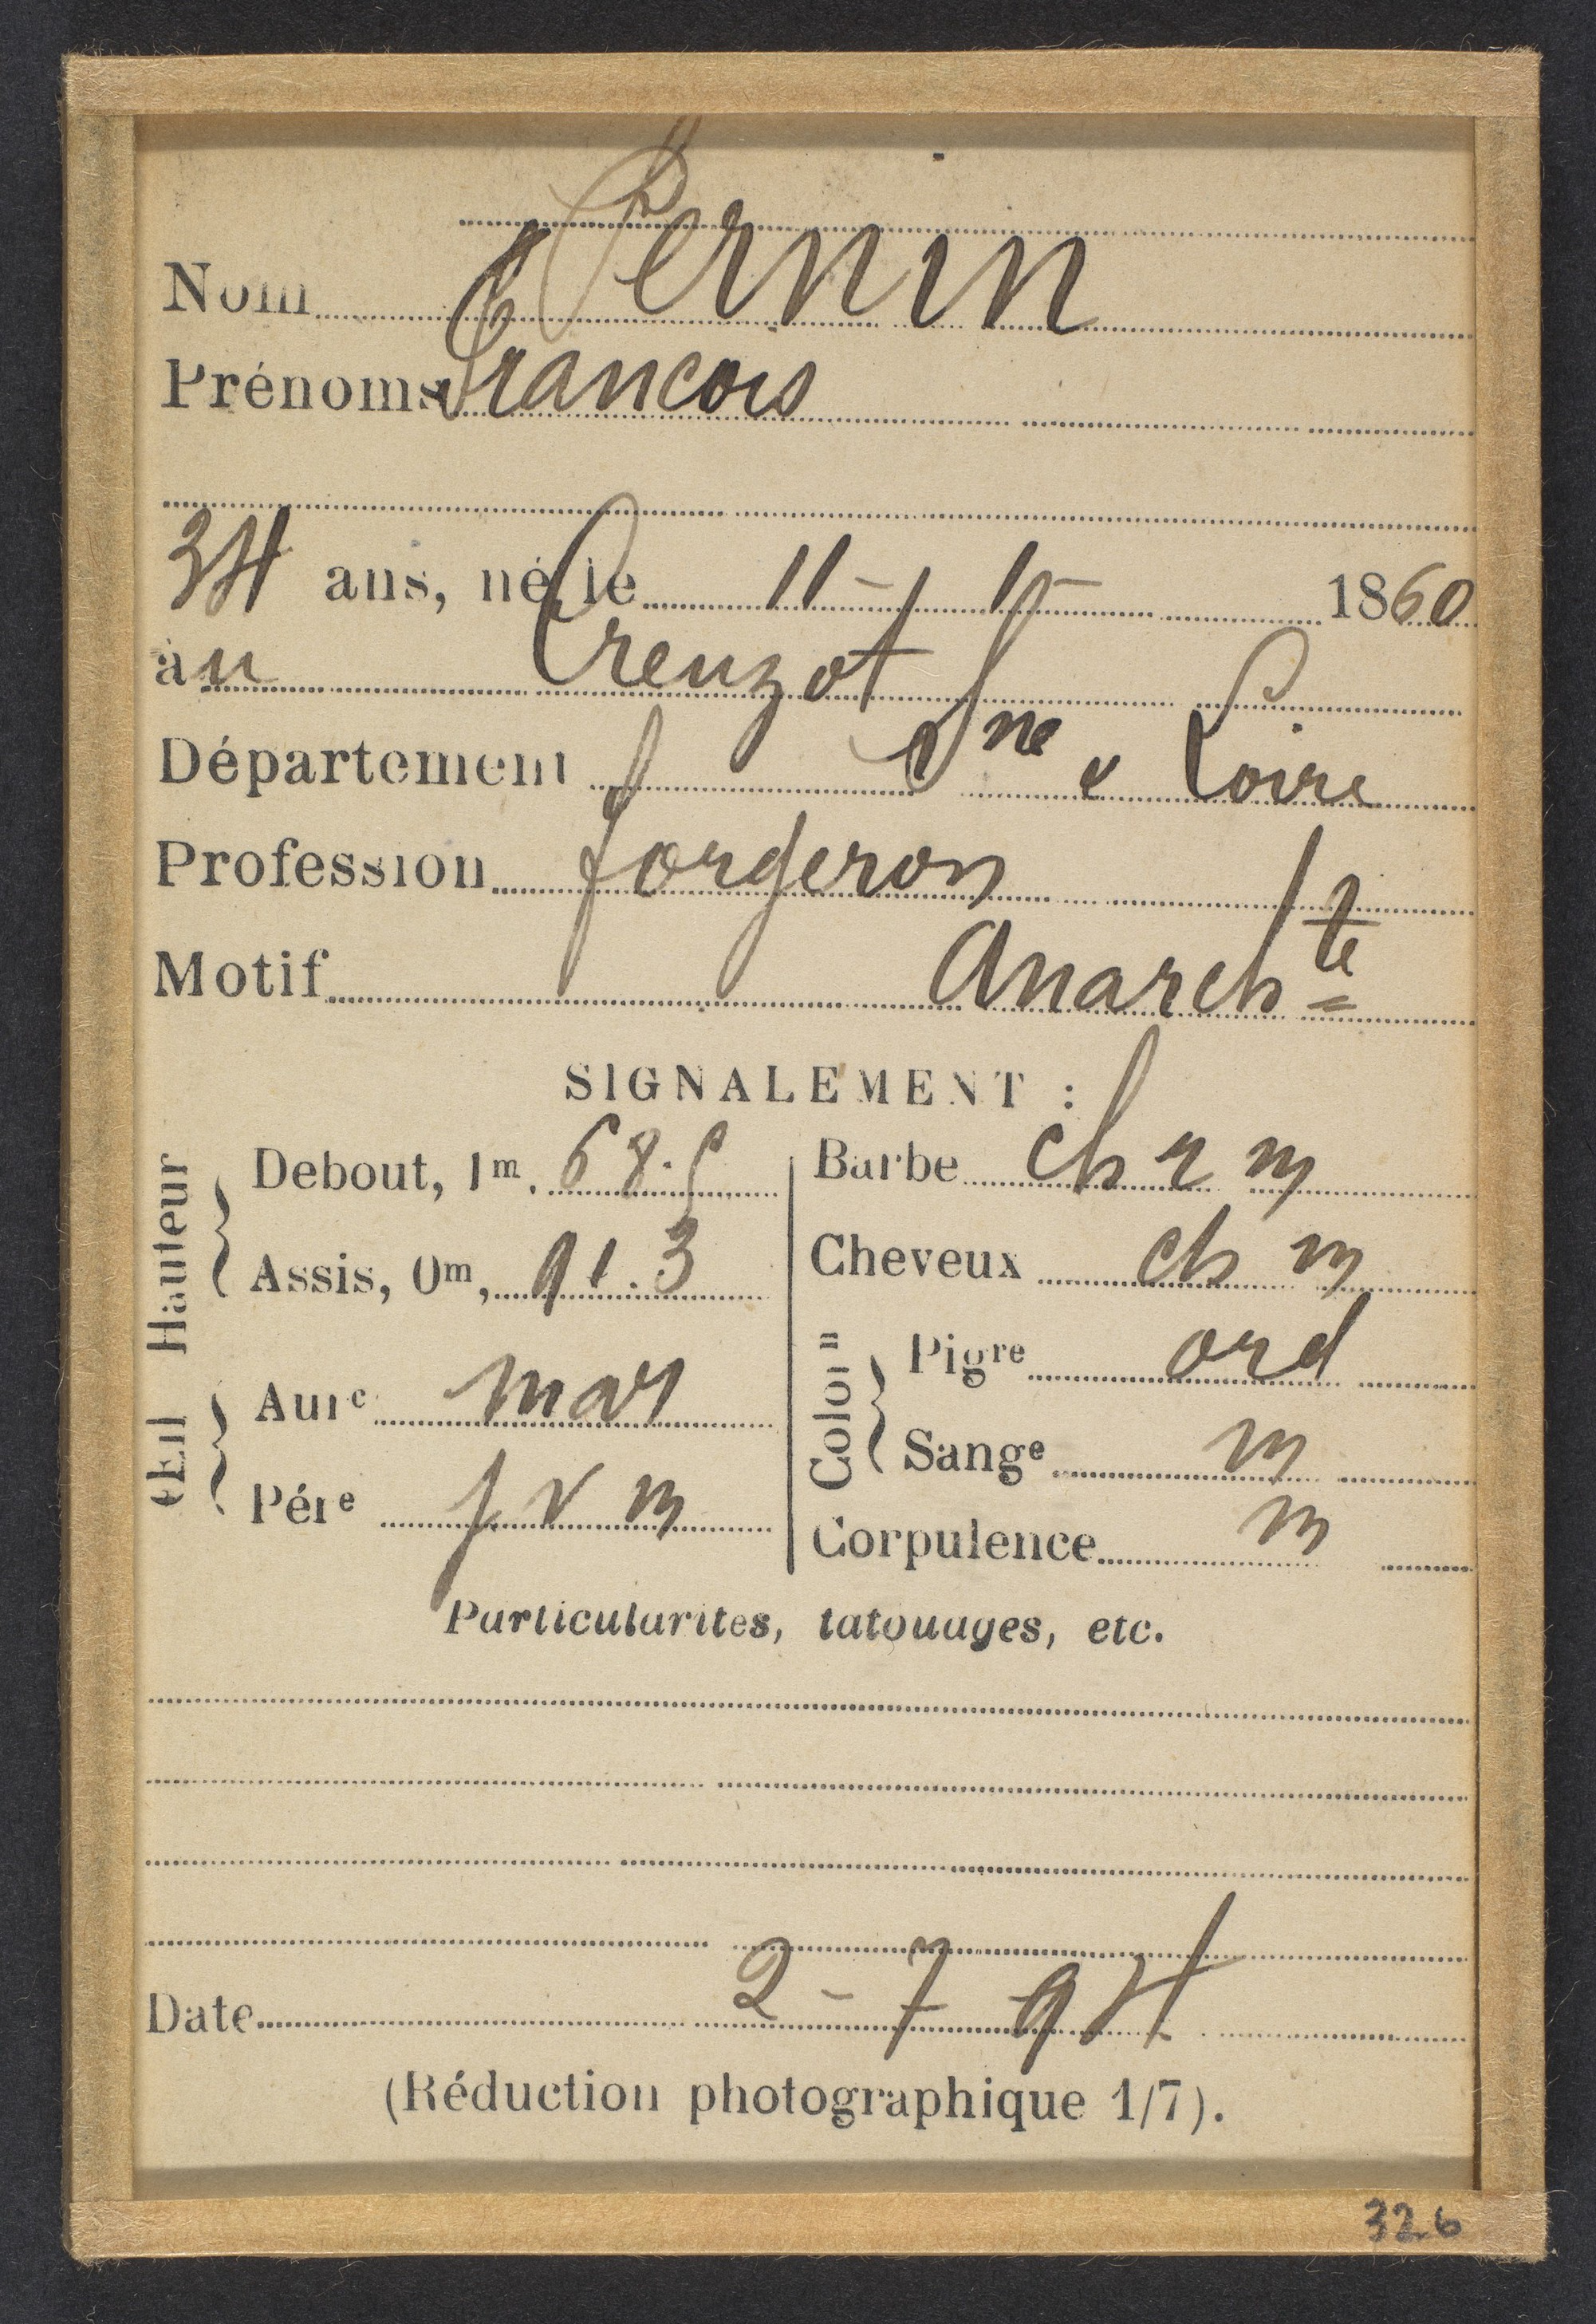 Nom Pernin
Prénoms Francois
34 ans, né le 11 - 1 - 1860
àu Creuzot
Département Sne & Loire
Profession forgeron
Motif Anarchte
SIGNALEMENT :
Hauteur
Debout, 1m. 68.5
Assis, 0m, 91.3
Œil
Aure mar
Pére f v m
Barbe ch r m
Cheveux ch m
Coloron
Pigre ord
Sange m
Corpulence m
Particularites, tatouages, etc.
Date 2 - 7 94
(Réduction photographique 1/7).
326